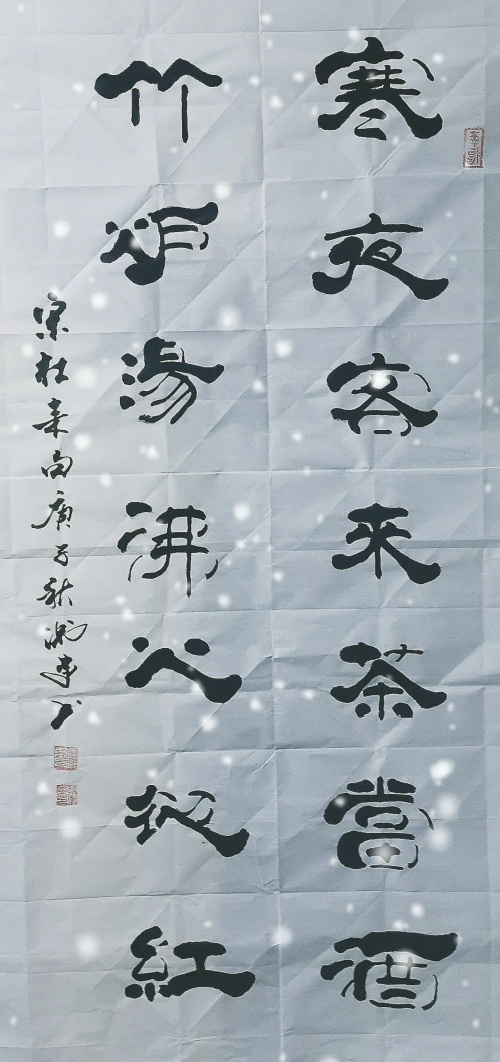 寒夜客來茶當酒
竹炉湯沸火初紅
宋杜耒句庚子秋书